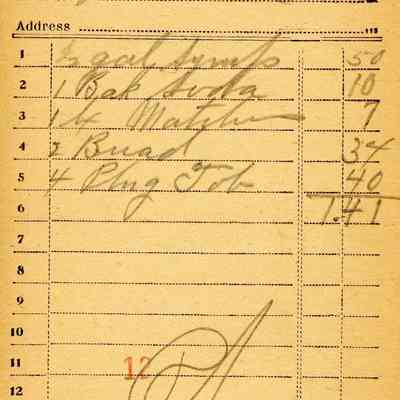 Address
1 ½ gal Syrup 50
2 1 Bak Soda 10
3 1 Matches 7
4 2 Bread 34
5 4 Plug Tob 40
6 1.41
7
8
9
10
11 12
12